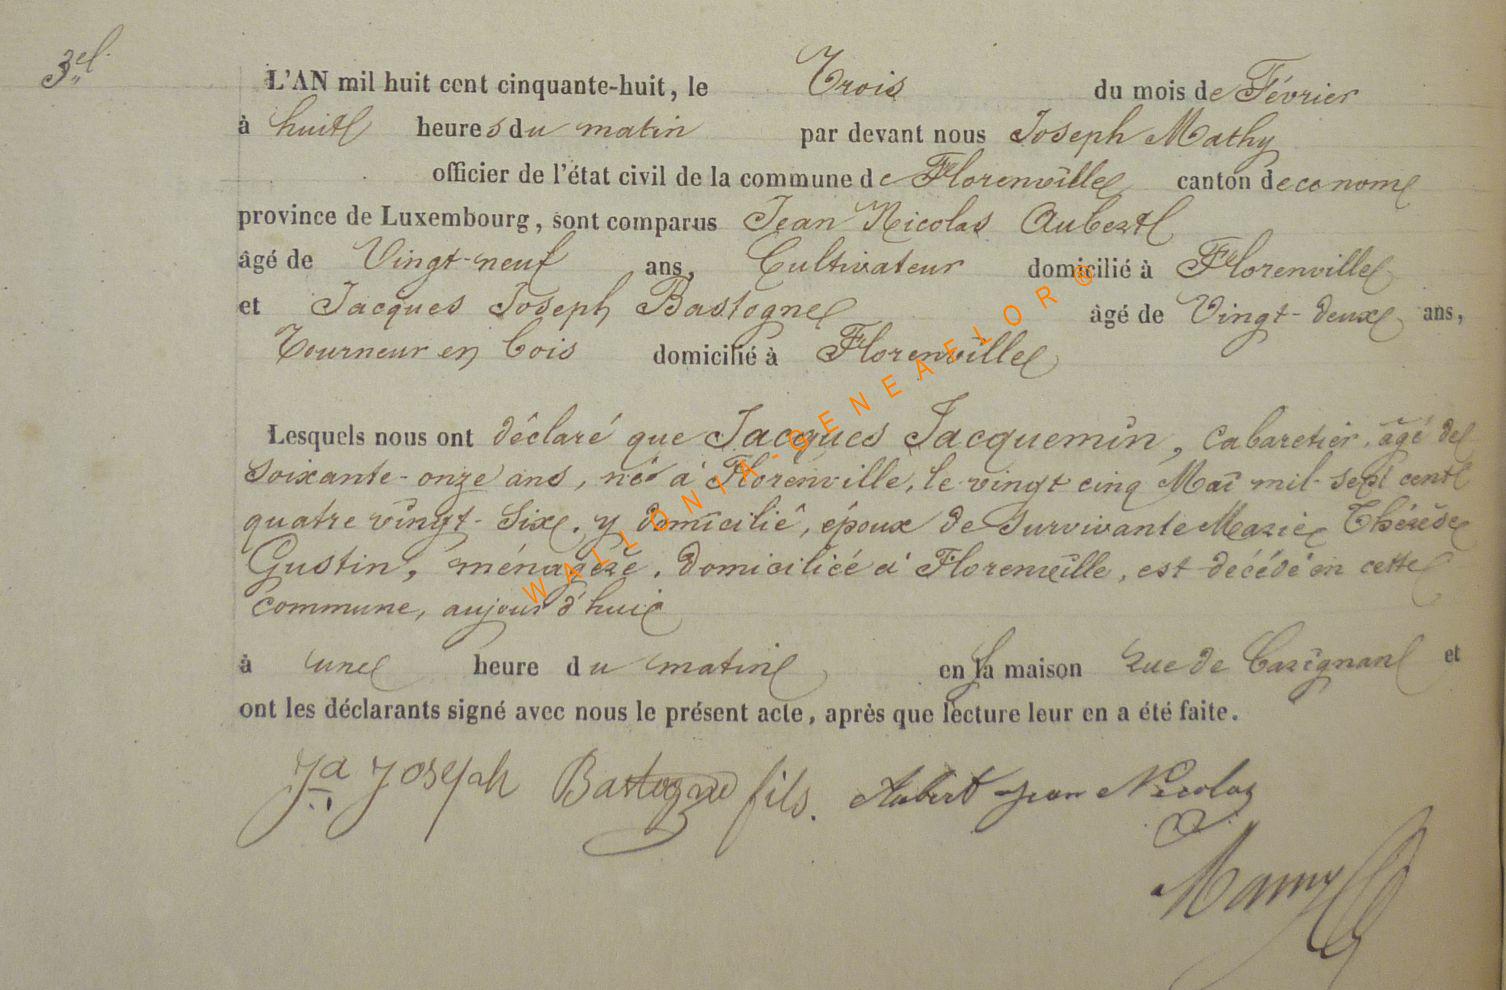 3.el
L'AN mil huit cent cinquante-huit, le Trois du mois de Février
à huit heures du matin par devant nous Joseph Mathy
officier de l'état civil de la commune de Florenville canton de ce nom
province de Luxembourg, sont comparus Jean Nicolas Aubert
âgé de Vingt-neuf ans, Cultivateur domicilié à Florenville
et Jacques Joseph Bastogne âgé de Vingt-deux ans,
Tourneur en bois domicilié à Florenville
Lesquels nous ont déclaré que Jacques Jacquemin, Cabaretier, âgé de
soixante-onze ans, né à Florenville, le vingt cinq Mai mil-sept cent
quatre vingt-Six, y domicilié, époux de survivante Marie Thérèse
Gustin, ménagère, domiciliée à Florenville, est décédé en cette
commune, aujourd'hui
à une heure du matin en sa maison rue de Carignan et
ont les déclarants signé avec nous le présent acte, après que lecture leur en a été faite.
Ja Joseph Bastogne fils. Aubert Jean Nicolas
WALLONIA-GENEAFLOR®